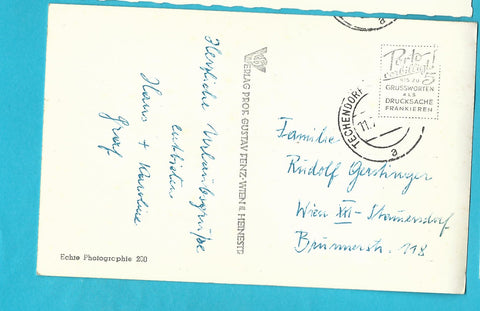 Herzliche Urlaubsgrüße
entbieten
Hans + Karoline
Graf
Echte Photographie 200
VERLAG PROF. GUSTAV FENZ - WIEN II. HEINESTR
TECHENDORF
11.
a
Porto
BIS ZU
GRUSSWORTEN
ALS
DRUCKSACHE
FRANKIEREN
Familie
Rudolf Gerstinger
Wien XXI - Stammersdorf
Brünnerstr. 118
a